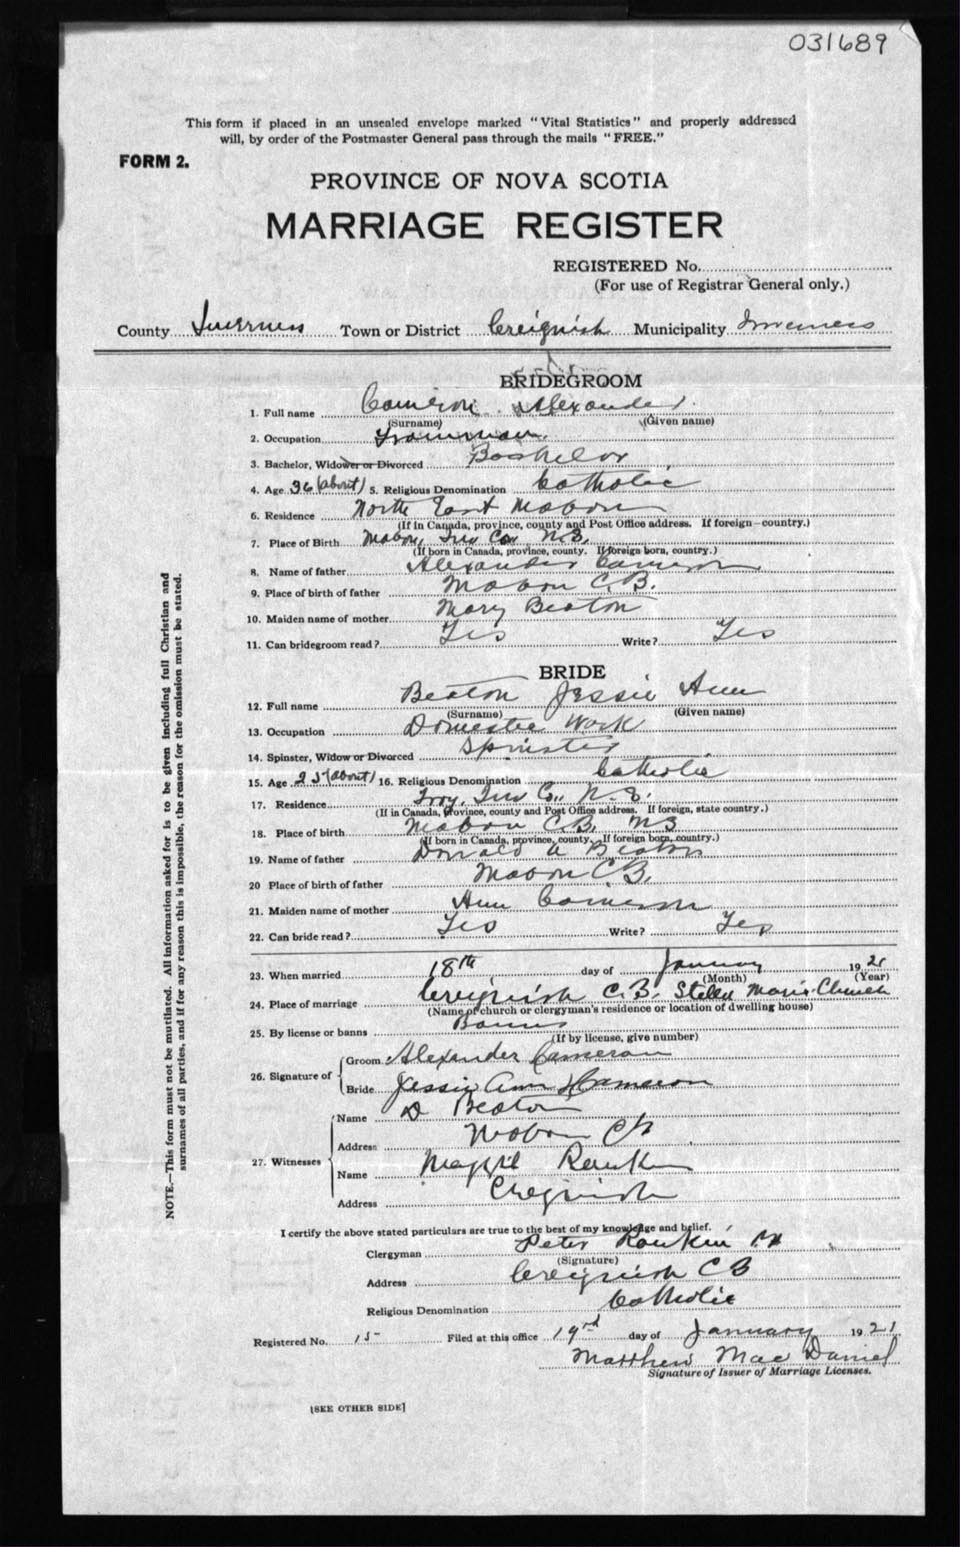 031689
This form if placed in an unsealed envelope marked "Vital Statistics" and properly addressed
will, by order of the Postmaster General pass through the mails "FREE."
FORM 2.
PROVINCE OF NOVA SCOTIA
MARRIAGE REGISTER
REGISTERED No.
(For use of Registrar General only.)
County Inverness Town or District Creignish Municipality Inverness
BRIDEGROOM
1. Full name Cameron Alexander
(Surname) (Given name)
2. Occupation
3. Bachelor, Widower or Divorced Bachelor
4. Age 36 (about) 5. Religious Denomination Catholic
6. Residence North East Mabou
(If in Canada, province, county and Post Office address. If foreign—country.)
7. Place of Birth Mabou, Inv Co. N.S.
(If born in Canada, province, county. If foreign born, country.)
8. Name of father Alexander Cameron
9. Place of birth of father Mabou C.B.
10. Maiden name of mother Mary Beaton
11. Can bridegroom read? Yes Write? Yes
BRIDE
12. Full name Beaton Jessie Ann
(Surname) (Given name)
13. Occupation Domestic Work
14. Spinster, Widow or Divorced Spinster
15. Age 25 (about) 16. Religious Denomination Catholic
17. Residence Troy, Inv Co., N.S.
(If in Canada, province, county and Post Office address. If foreign, state country.)
18. Place of birth Mabou C.B. NS
(If born in Canada, province, county. If foreign born, country.)
19. Name of father Donald A Beaton
20 Place of birth of father Mabou C.B.
21. Maiden name of mother Ann Cameron
22. Can bride read? Yes Write? Yes
23. When married 18th day of January 1921
(Month) (Year)
24. Place of marriage Creignish C.B. Stella Maris Church
(Name of church or clergyman's residence or location of dwelling house)
25. By license or banns Banns
(If by license, give number)
26. Signature of Groom Alexander Cameron
Bride Jessie Ann Cameron
27. Witnesses Name D Beaton
Address Mabou CB
Name Maggie Rankin
Address Creignish
I certify the above stated particulars are true to the best of my knowledge and belief.
Clergyman Peter Rankin
(Signature)
Address Creignish C B
Religious Denomination Catholic
Registered No. 15 Filed at this office 19rd day of January 1921
Matthew Mac Daniel
Signature of Issuer of Marriage Licenses.
[SEE OTHER SIDE]
NOTE.—This form must not be mutilated. All information asked for is to be given including full Christian and
surnames of all parties, and if for any reason this is impossible, the reason for the omission must be stated.